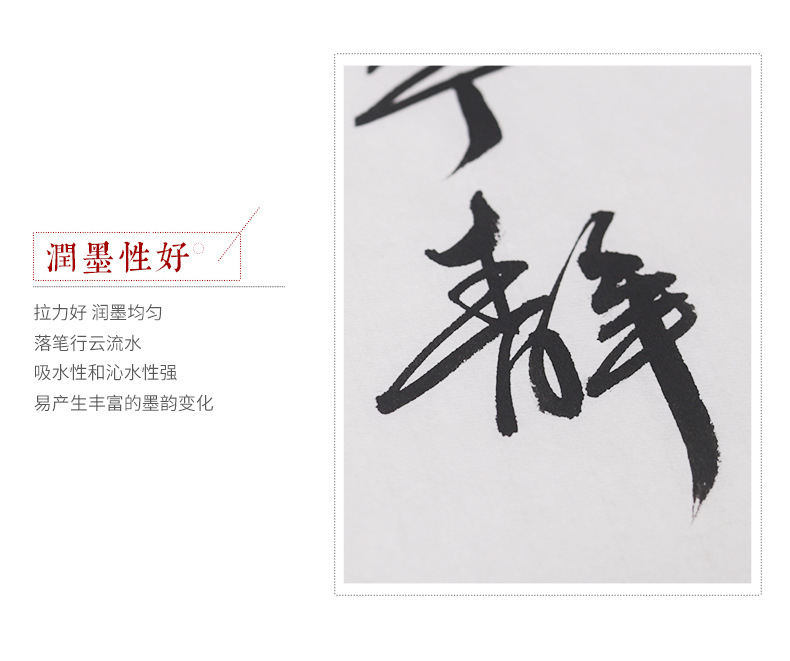 潤墨性好
拉力好 润墨均匀
落笔行云流水
吸水性和沁水性强
易产生丰富的墨韵变化
静